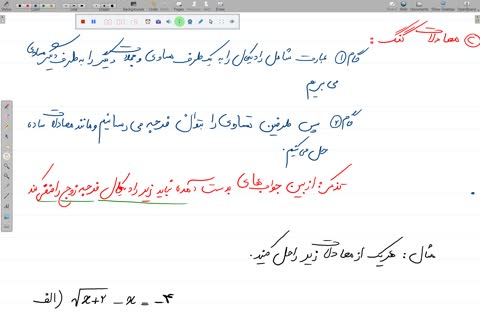 ۲) معادلات گنگ:
گام ۱) عبارت شامل رادیکال را به یک طرف مساوی و جملات دیگر را به طرف دیگر مساوی
می بریم
گام ۲) پس طرفین تساوی را بتوان فرجه می رسانیم و مانند معادلات ساده
حل می کنیم.
تذکر: از بین جواب های بدست آمده نباید زیر رادیکال فرجه زوج را منفی کند
مثال: هر یک از معادلات زیر را حل کنید.
الف) √x+2 - x = -4